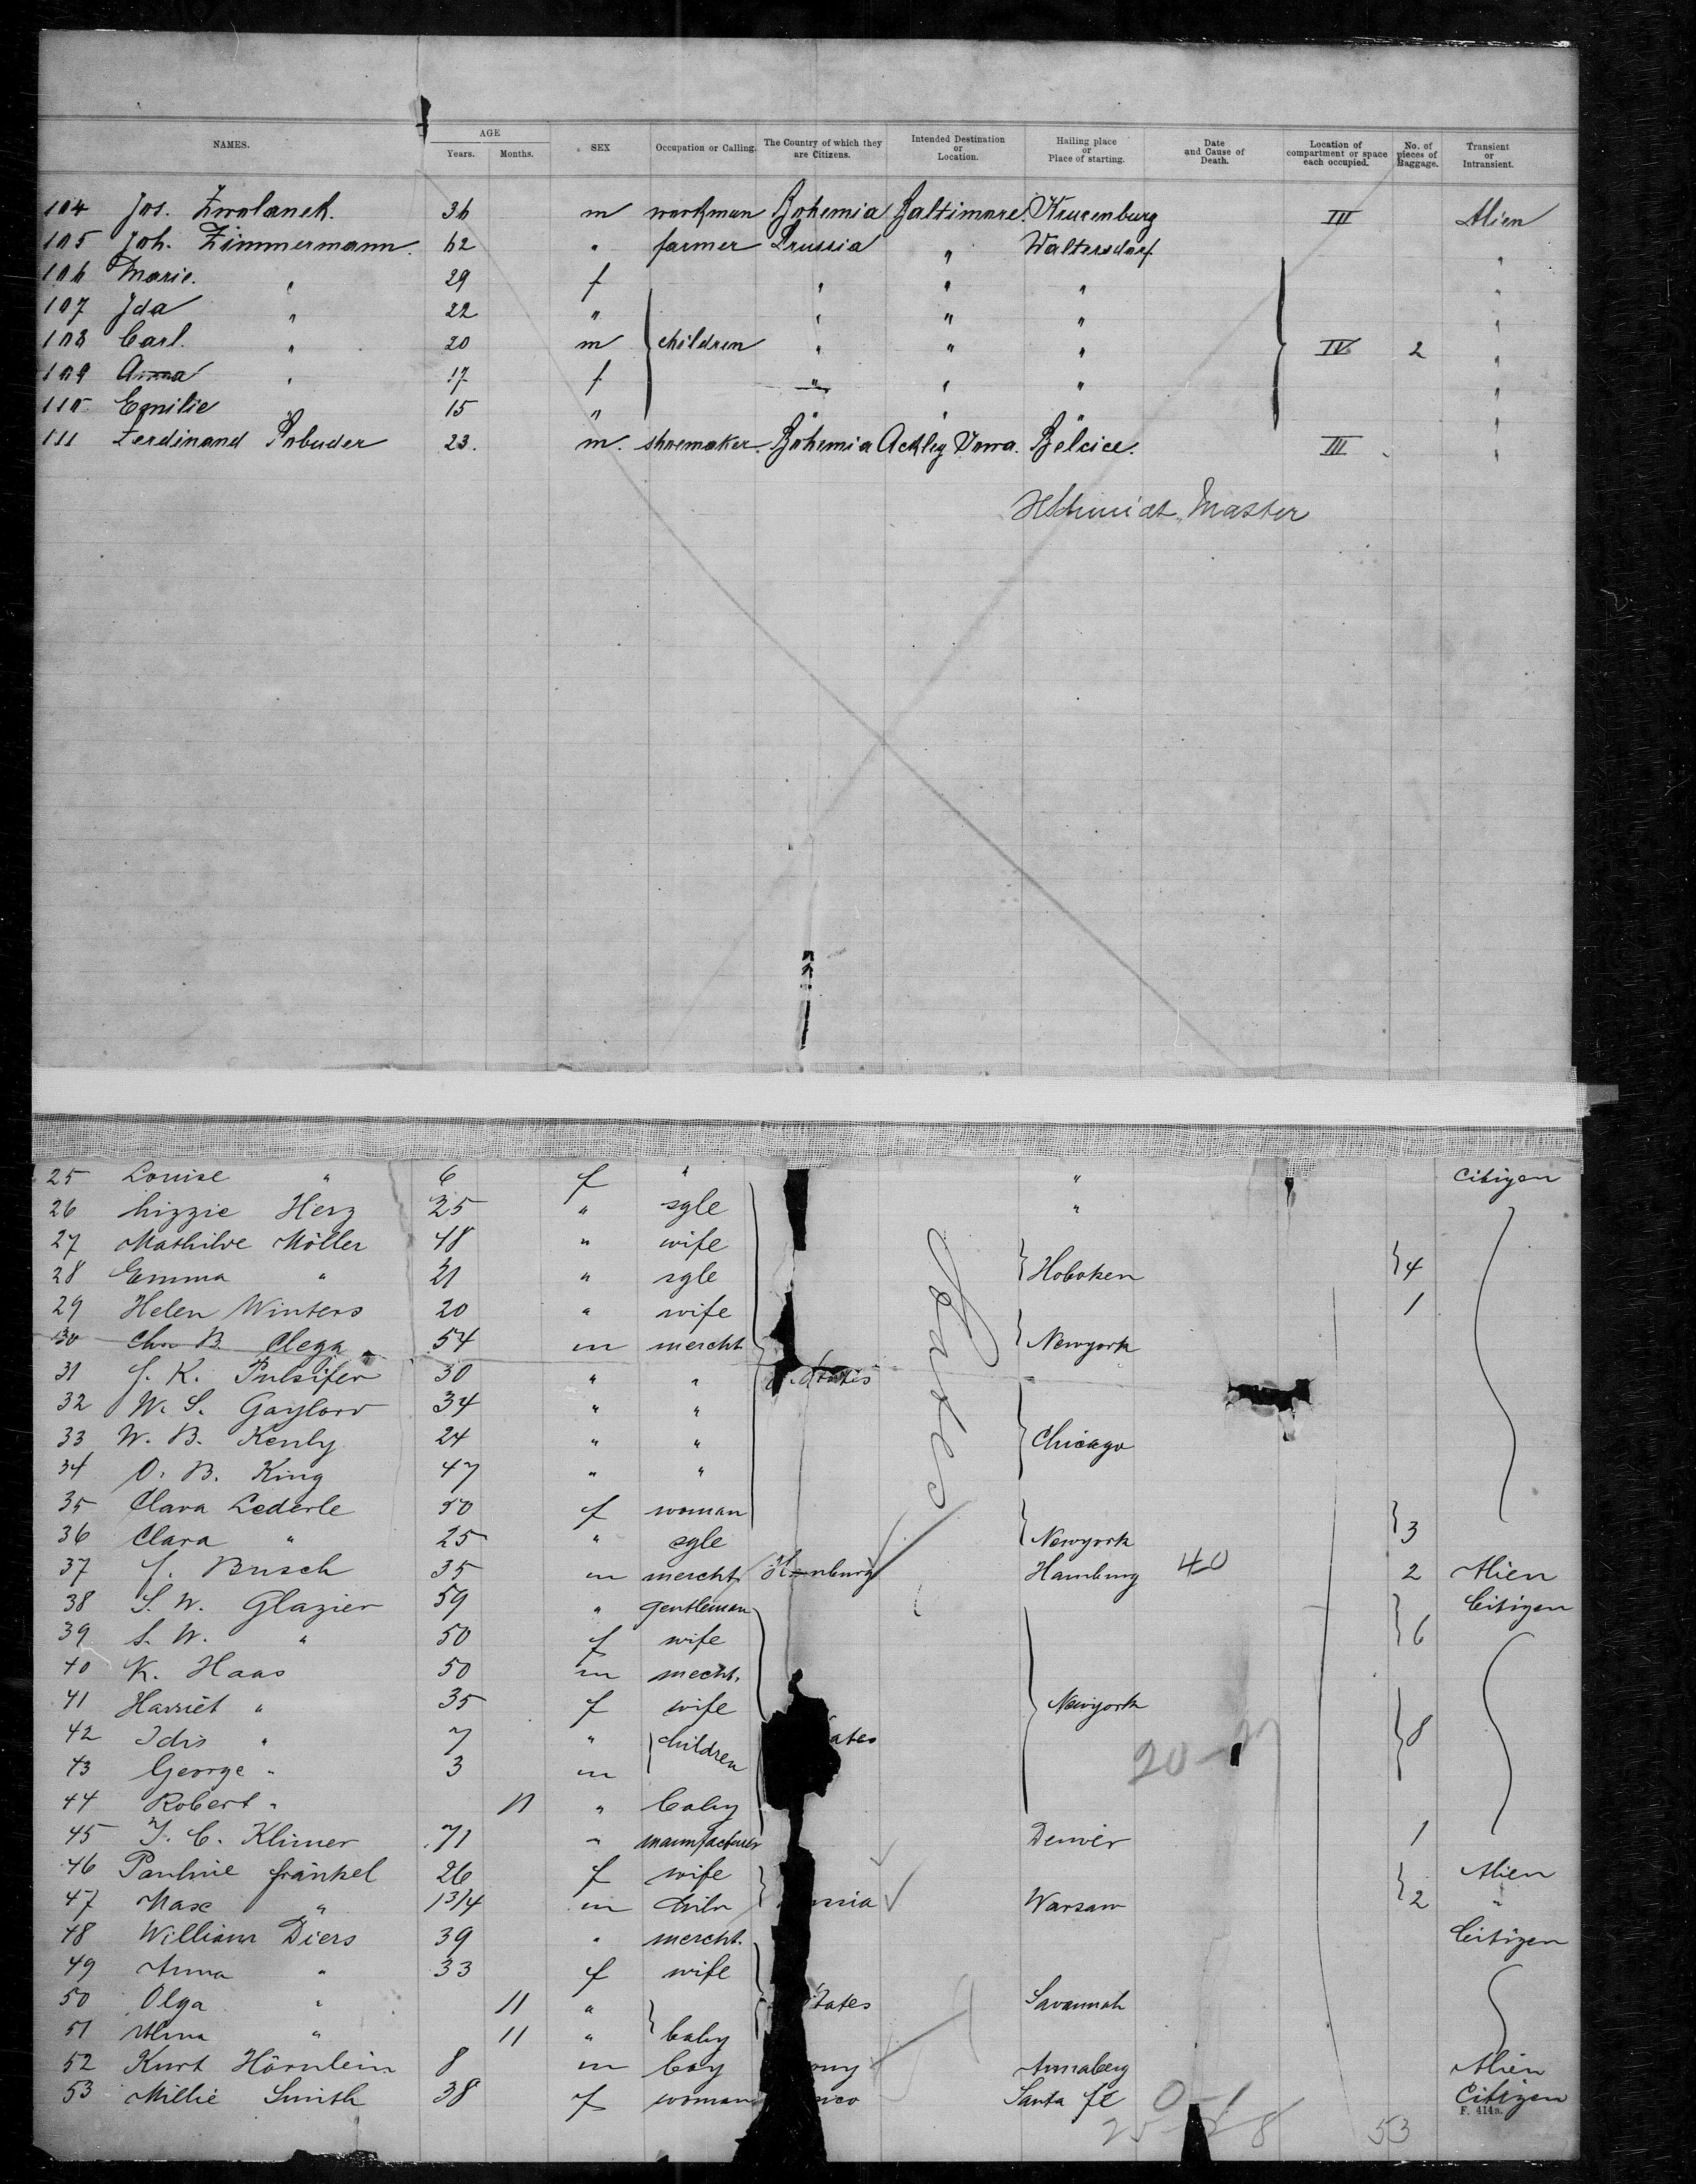 NAMES. AGE Years. Months. SEX Occupation or Calling. The Country of which they are Citizens. Intended Destination or Location. Hailing place or Place of starting. Date and Cause of Death. Location of compartment or space each occupied. No. of pieces of Baggage. Transient or Intransient.
104 Jos. Zwolanek. 36 m workman Bohemia Baltimore. Krucenburg III Alien
105 Joh. Zimmermann. 62 " farmer Prussia " Waltersdorf "
106 Marie. " 29 f " " " "
107 Ida " 22 " " " " "
108 Carl. " 20 m children " " " IV 2 "
109 Anna " 17 f " " " "
110 Emilie " 15 " " " " "
111 Ferdinand Pobuder 23. m. shoemaker. Bohemia Ackley Iowa. Belcice. III "
HSchmidt, Master
25 Louise " 6 f " " Citizen
26 Lizzie Herz 25 " sgle "
27 Mathilde Möller 48 " wife
28 Emma " 21 " sgle Hoboken 4
29 Helen Winters 20 " wife 1
30 Chr B. Clega 54 m mercht Newyork
31 J. K. Pulsifer 30 " " States
32 W. S. Gaylord 34 " "
33 W. B. Kenly 24 " " Chicago
34 O. B. King 47 " "
35 Clara Lederle 50 f woman
36 Clara " 25 " sgle Newyork 3
37 J. Busch 35 m mercht Hamburg 40 2 Alien
38 S. W. Glazier 59 " gentleman Citizen
39 S. W. " 50 f wife 6
40 K. Haas 50 m mecht.
41 Harriet " 35 f wife Newyork
42 Idis " 7 " children ates 8
43 George " 3 m 20-
44 Robert " 11 " baby
45 J. C. Klimer 71 " manufacturer Denver 1
46 Pauline Fränkel 26 f wife Alien
47 Max " 1 3/4 m chiln ssia Warsaw 2 "
48 William Diers 39 " mercht. Citizen
49 Anna " 33 f wife
50 Olga " 11 " States Savannah
51 Alma " 11 " baby
52 Kurt Hörnlein 8 m boy ony Annaberg Alien
53 Millie Smith 38 f woman xico Santa fé 0-1 Citizen
F. 414a.
25-28 53